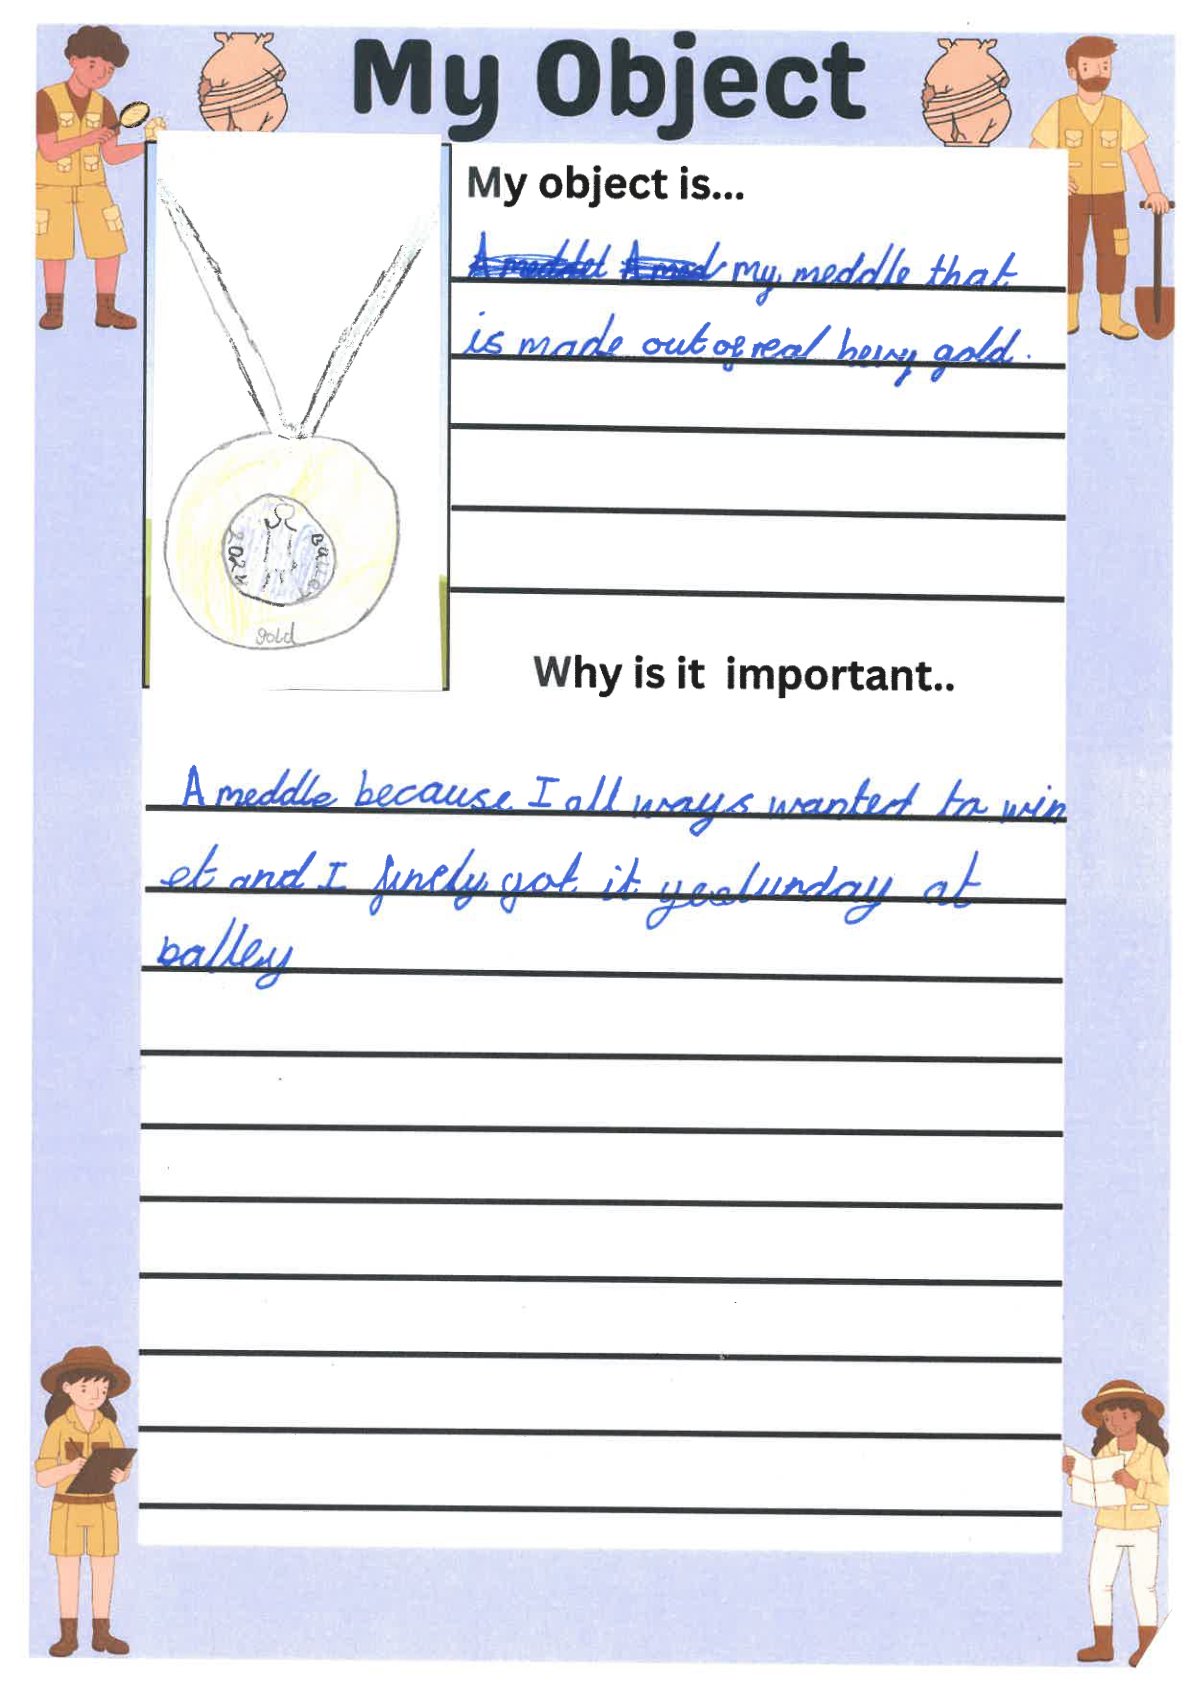 My Object
My object is...
my meddle that
is made out of real heivy gold.
2024
Balley
gold
Why is it important..
A meddle because I all ways wanted to win
et and I finely got it yesturday at
balley